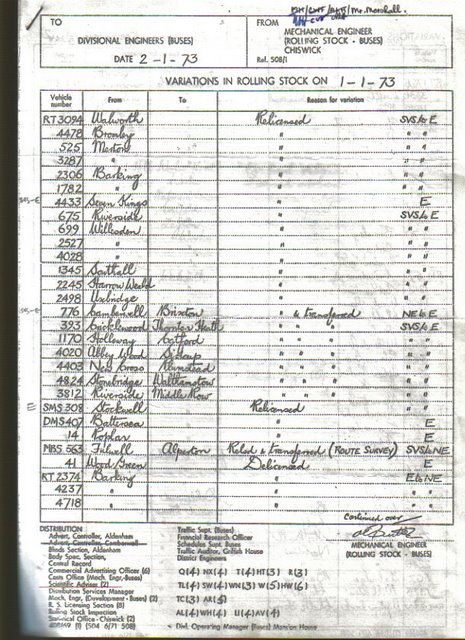 TO
DIVISIONAL ENGINEERS (BUSES)
DATE 2-1-73
FROM
MECHANICAL ENGINEER
(ROLLING STOCK - BUSES)
CHISWICK
Ref. 508/1
VARIATIONS IN ROLLING STOCK ON 1-1-73
Vehicle number From To Reason for variation
RT3094 Walworth Relicensed SVS to E
4478 Bromley " " "
525 Merton " " "
3287 " " " "
2306 Barking " " "
1782 " " " "
4433 Seven Kings " E
675 Riverside " SVS to E
699 Willesden " " "
2527 " " " "
4028 " " " "
1345 Southall " " "
2245 Harrow Weald " " "
2498 Uxbridge " " "
776 Camberwell Brixton " & transferred NE to E
393 Cricklewood Thornton Heath " " " SVS to E
1170 Holloway Catford " " " " "
4020 Abbey Wood Sidcup " " " " "
4403 New Cross Plumstead " " " " "
4824 Stonebridge Walthamstow " " " " "
3812 Riverside Middle Row " " " " "
E SMS 308 Stockwell Relicensed
DMS 407 Battersea " E
14 Poplar " E
MBS 563 Fulwell Alperton Relcd & transferred (ROUTE SURVEY) SVS to NE
41 Wood Green Delicensed E
RT 2374 Barking " E to NE
4237 " " " "
4718 " " " "
Continued over
MECHANICAL ENGINEER
(ROLLING STOCK - BUSES)
DISTRIBUTION
Advert. Controller, Aldenham
Advert. Controller, Camberwell
Blinds Section, Aldenham
Body Spec. Section,
Central Record
Commercial Advertising Officer (6)
Costs Office (Mech. Engr.-Buses)
Scientific Adviser (2)
Distribution Services Manager
Mech. Engr. (Development - Buses) (2)
R. S. Licensing Section (8)
Rolling Stock Inspection
Statistical Office - Chiswick (2)
(1) (504 6/71 508)
Traffic Supt. (Buses)
Financial Research Officer
Schedules Supt. Buses
Traffic Auditor, Griffith House
District Engineers
Q(4) NX(4) T(4) HT(3) R(3)
TL(4) SW(4) WN(3) W(5) HW(6)
TC(3) AR(5)
AL(4) WH(4) U(4) AV(4)
Divl. Operating Manager (Buses) Mansion House